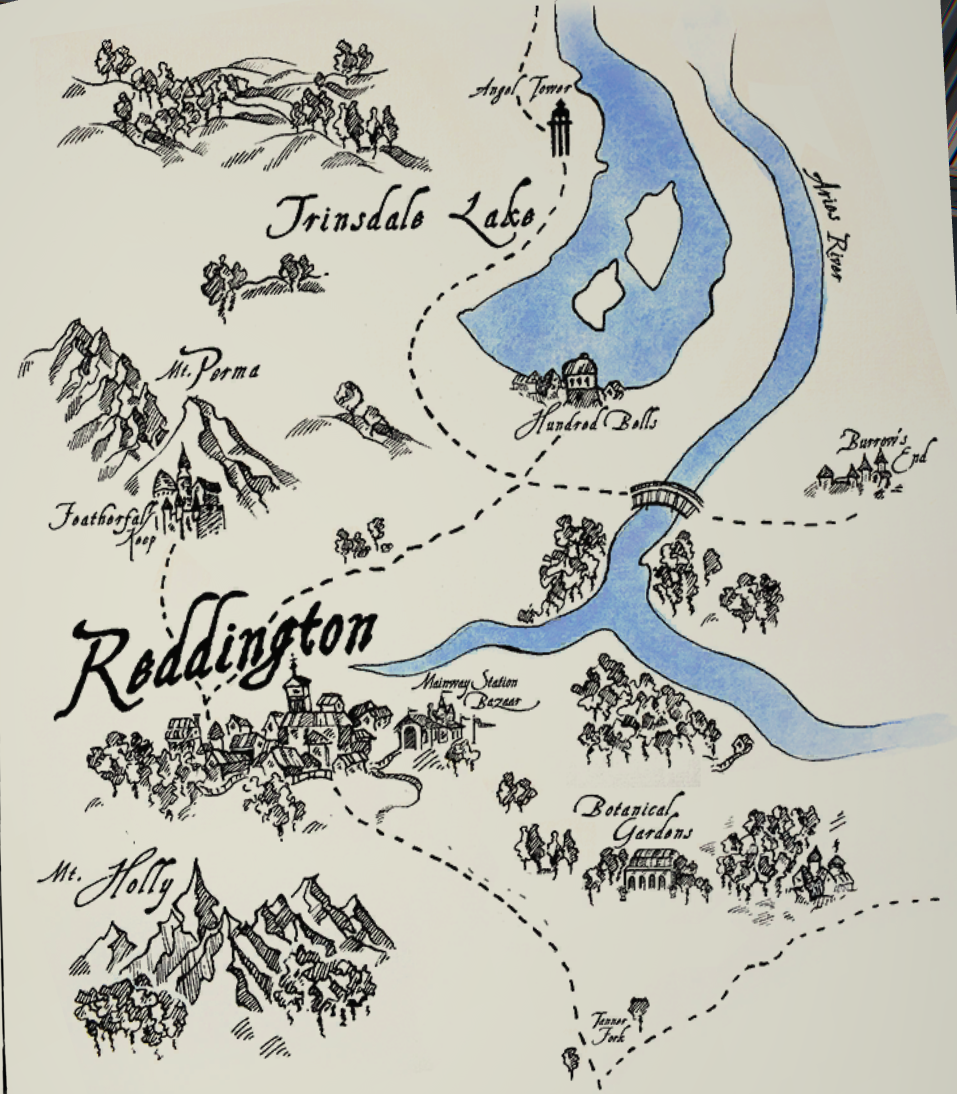 Angel Tower
Trinsdale Lake
Aries River
Mt. Perma
Hundred Bells
Burrow's
End
Featherfall
Keep
Reddington
Mainway Station
Bazaar
Botanical
Gardens
Mt. Holly
Tanner
Fork